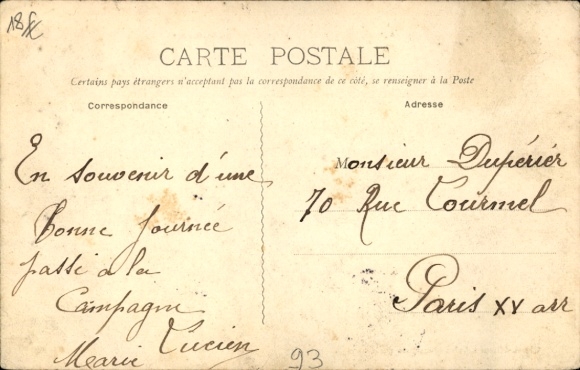 CARTE POSTALE
Certains pays étrangers n'acceptant pas la correspondance de ce côté, se renseigner à la Poste
Correspondance
Adresse
En souvenir d'une
Bonne Journée
passé a la
Campagne
Lucien
Marie
Monsieur Dupérier
70 Rue Tourmel
Paris XV arr
93